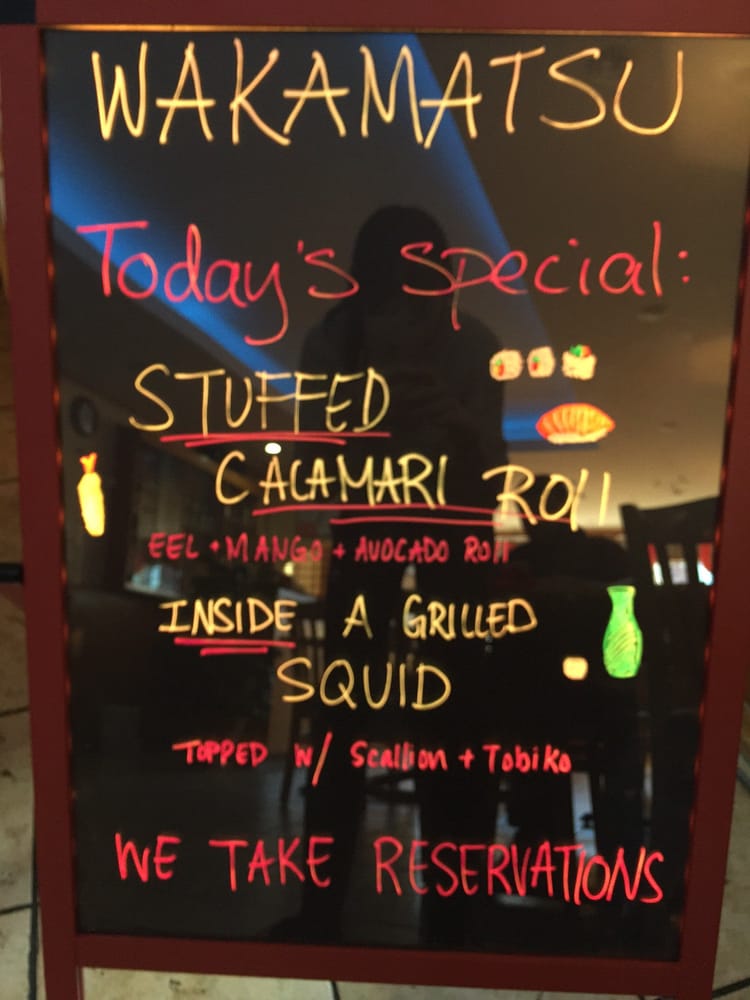 WAKAMATSU
Today's special:
STUFFED
CALAMARI ROll
EEL + MANGO + AVOCADO ROll
INSIDE A GRILLED
SQUID
TOPPED W/ Scallion + Tobiko
WE TAKE RESERVATIONS